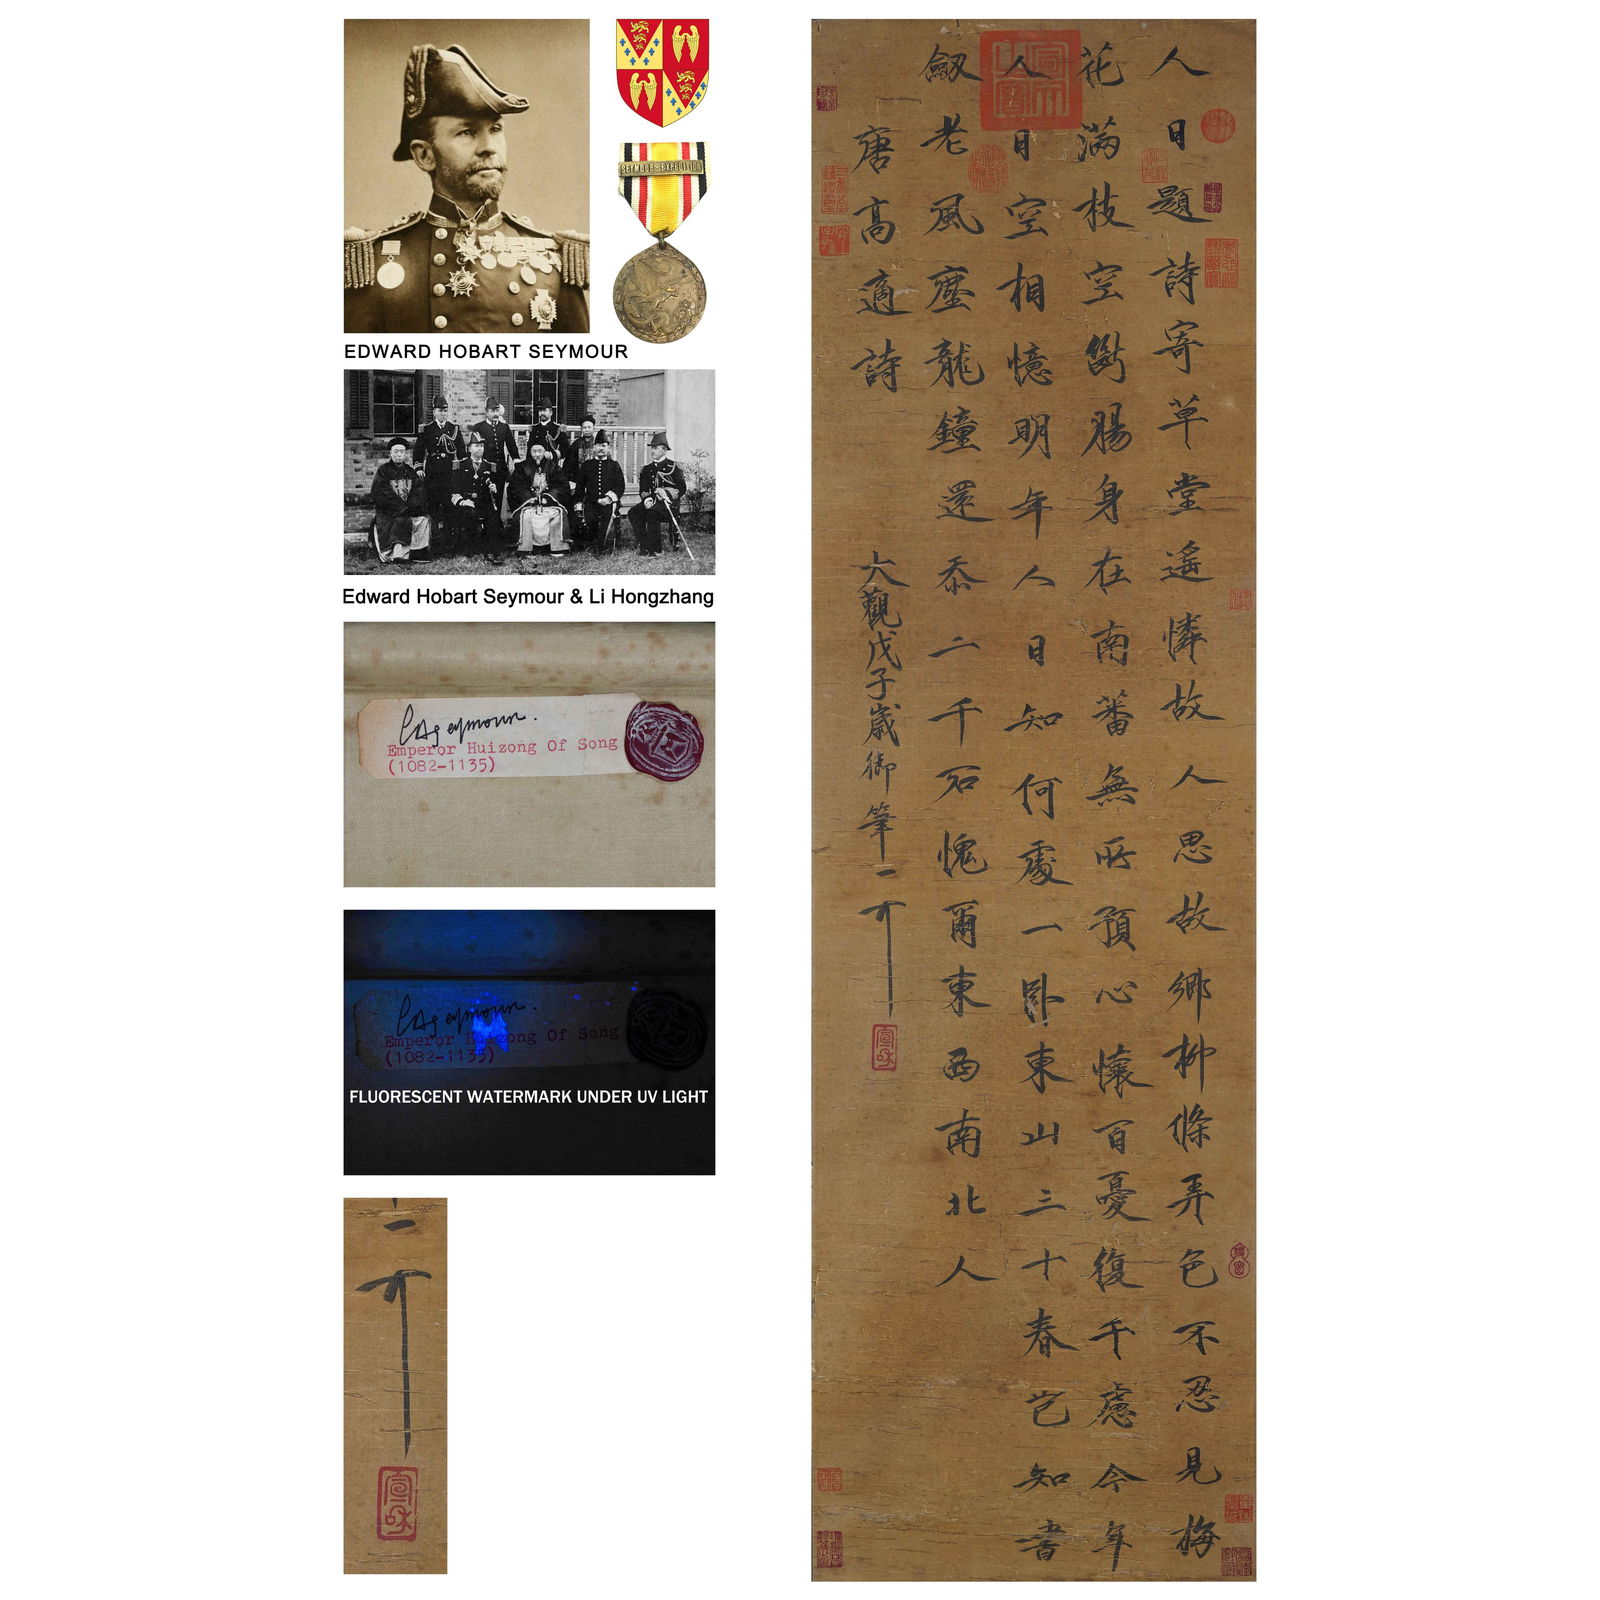 SEYMOUR EXPEDITION
EDWARD HOBART SEYMOUR
Edward Hobart Seymour & Li Hongzhang
Seymour.
Emperor Huizong Of Song
(1082-1135)
Seymour.
Emperor Huizong Of Song
(1082-1135)
FLUORESCENT WATERMARK UNDER UV LIGHT
宣和
人日題詩寄草堂遙憐故人思故鄉柳條弄色不忍見梅
花滿枝空斷腸身在南蕃無所預心懷百憂復千慮今年
人日空相憶明年人日知何處一臥東山三十春豈知書
劔老風塵龍鐘還忝二千石愧爾東西南北人
唐高適詩
大觀戊子歲御筆
宣和